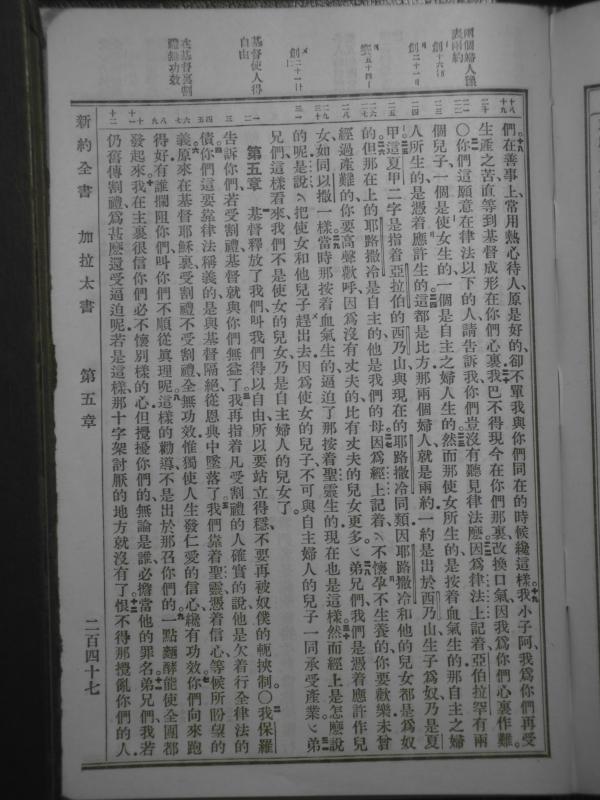 兩個婦人預表兩約
創十六章
創二十一章
賽五十四章
創二十一章
基督使人得自由
在基督裏割禮無功效
們在善事上常用熱心待人原是好的卻不單我與你們同在的時候纔這樣我小子阿我爲你們再受
生產之苦直等到基督成形在你們心裏我巴不得現今在你們那裏改換口氣因我爲你們心裏作難
○你們這願意在律法以下的人請告訴我你們豈沒有聽見律法麽因爲律法上記着亞伯拉罕有兩
個兒子一個是使女生的一個是自主之婦人生的然而那使女所生的是按着血氣生的那自主之婦
人所生的是憑着應許生的這都是比方那兩個婦人就是兩約一約是出於西乃山生子爲奴乃是夏
甲這夏甲二字是指着亞拉伯的西乃山與現在的耶路撒冷同類因耶路撒冷和他的兒女都是爲奴
的但那在上的耶路撒冷是自主的他是我們的母因爲經上記着不懷孕不生養的你要歡樂未曾
經過產難的你要高聲歡呼因爲沒有丈夫的比有丈夫的兒女更多弟兄們我們是憑着應許作兒
女如同以撒一樣當時那按着血氣生的逼迫了那按着聖靈生的現在也是這樣然而經上是怎麽說
的呢是說把使女和他兒子趕出去因爲使女的兒子不可與自主婦人的兒子一同承受產業弟
兄們這樣看來我們不是使女的兒女乃是自主婦人的兒女了
第五章 基督釋放了我們叫我們得以自由所以要站立得穩不要再被奴僕的軛挾制○我保羅
告訴你們若受割禮基督就與你們無益了我再指着凡受割禮的人確實的說他是欠着行全律法的
債你們這要靠律法稱義的是與基督隔絕從恩典中墜落了我們靠着聖靈憑着信心等候所盼望的
義原來在基督耶穌裏受割禮不受割禮全無功效惟獨使人生發仁愛的信心纔有功效你們向來跑
得好有誰攔阻你們叫你們不順從真理呢這樣的勸導不是出於那召你們的一點麵酵能使全團都
發起來我在主裏很信你們必不懷別樣的心但攪擾你們的無論是誰必擔當他的罪名弟兄們我若
仍舊傳割禮爲甚麽還受逼迫呢若是這樣那十字架討厭的地方就沒有了恨不得那攪亂你們的人
新約全書 加拉太書 第五章 二百四十七